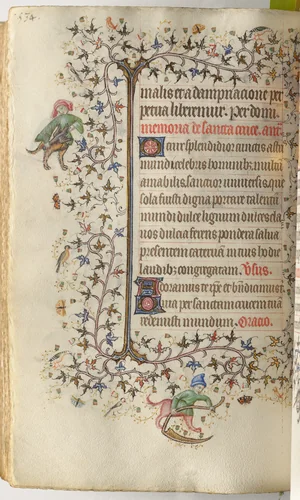 534
malis et a dampnacione per
petua liberemur. Per domi
memoria de sancta cruce. ant.
crux splendidior cunctis astris
mundo celebris hominibus multum
amabilis. sanctior universis que
sola fuisti digna portare talentum
mundi dulce lignum dulces cla
vos dulcia ferens pondera salva
presentem catervam in tuis hodie
laudibus congregatam. Vsus.
Adoramus te xpe et benedicimus t
Quia per sanctam crucem tuam
redemisti mundum. Oracio.